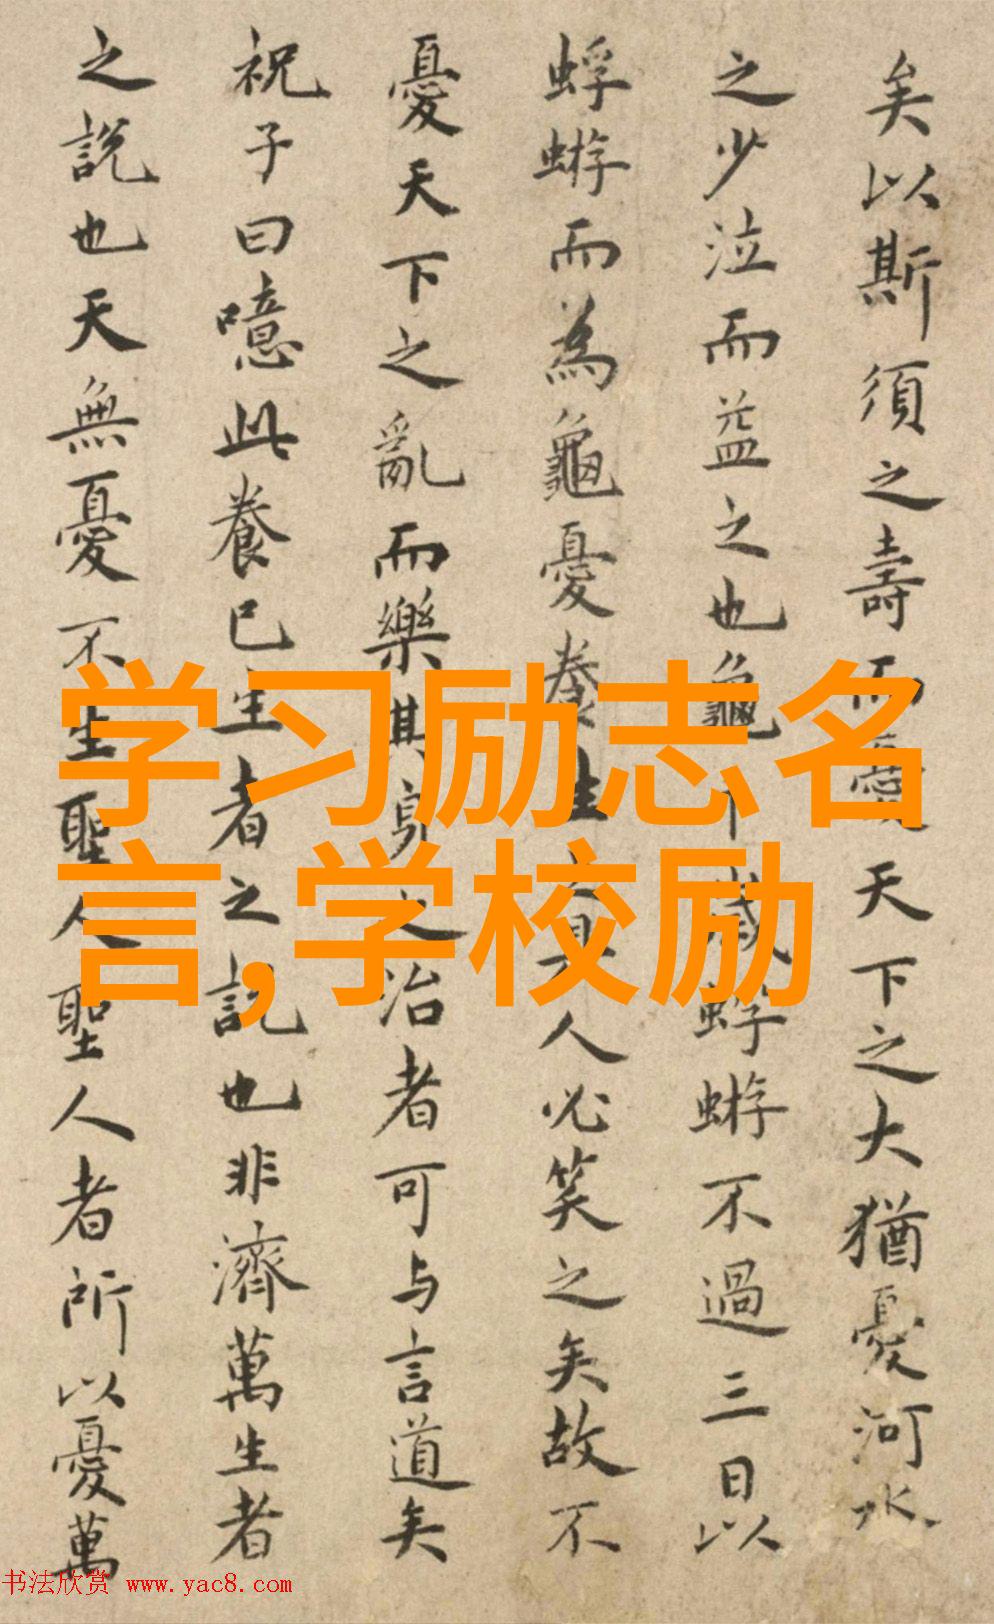 矣以斯須之壽而憂天下之大猶憂河水
之少泣而益之也龜下減蜉蝣不過三日以
蜉蝣而為龜憂養生之具人必笑之矣故不
憂天下之亂而樂其身之治者可与言道矣
祝子曰噫此養己生者之説也非濟萬生者
之説也天無憂不生聖人聖人者所以憂萬
学习励志名
言,学校励
书法欣赏 www.yac8.com